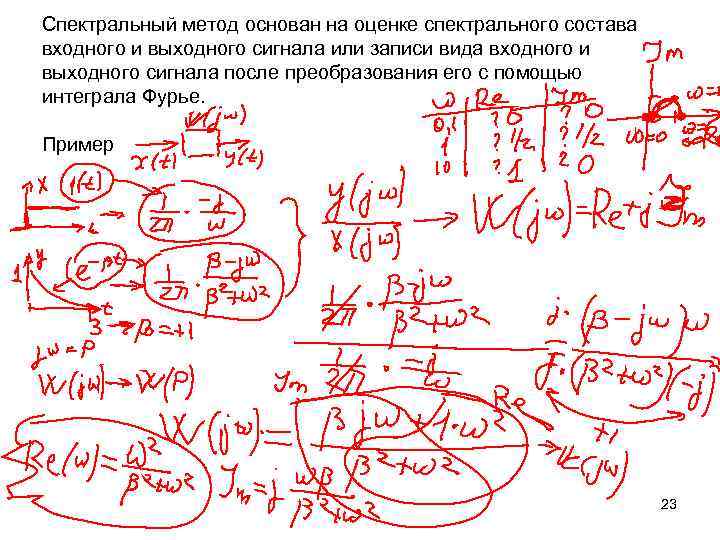 Спектральный метод основан на оценке спектрального состава
входного и выходного сигнала или записи вида входного и
выходного сигнала после преобразования его с помощью
интеграла Фурье.
Пример
W(jω)
x(t) y(t)
ω Re Im
0,1 ? 0 ? 0
1 ? 1/2 ? 1/2
10 ? 1 ? 0
Im
ω=0
x 1(t) t
1/2π · -j/ω
y 1 e^-βt t
1/2π · β-jω/β²+ω²
y(jω)/x(jω) → W(jω)=Re+jIm
β=+1
jω=p
W(jω)→W(p)
1/2π · β-jω/β²+ω²
1/2π · -j/ω
j·(β-jω)ω
j·(β²+ω²)(-j)
+1
Im Re
W(jω)=βjω+1·ω²/β²+ω² → W(jω)
Re(ω)=ω²/β²+ω²
Im=j ωβ/β²+ω²
23